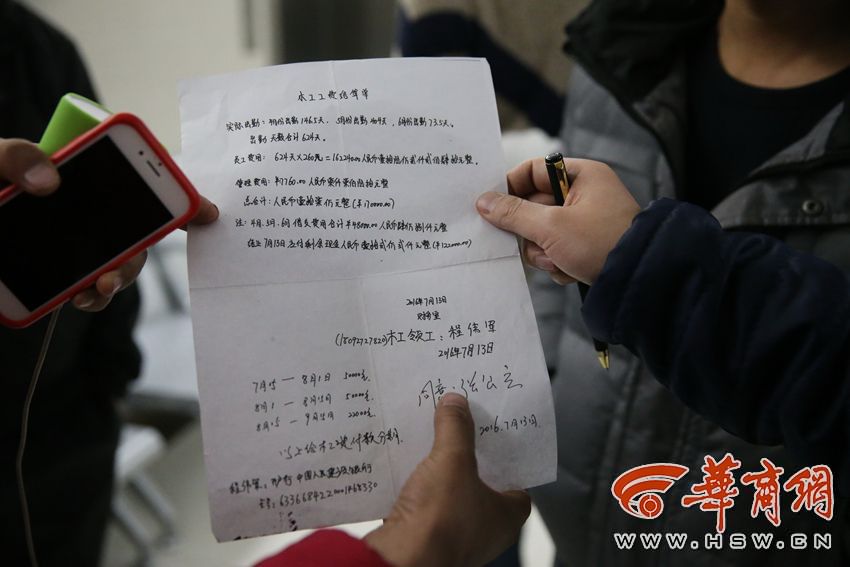 木工工资结算单
实际出勤:4月份出勤146.5天,5月份出勤404天,6月份出勤73.5天。
出勤天数合计624天。
民工费用:624天×260元=162240.00人民币壹拾陆万贰仟贰佰肆拾元整。
管理费用:¥7760.00人民币柒仟柒佰陆拾元整
总合计:人民币壹拾柒万元整(¥170000.00)
注:4月.5月.6月借支费用合计¥48000.00人民币肆万捌仟元整
结止7月13日应付剩余现金人民币壹拾贰万贰仟元整(¥122000.00)
2016年7月13日
(18092727820)木工领工:程伟军
2016年7月13日
7月15 — 8月1日 50000元
8月1 — 8月15日 50000元
8月15 — 9月15日 22000元
同意 张公立
2016.7月13日.
以上给木工
程伟军,开户行中国人民
华商网
WWW.HSW.CN